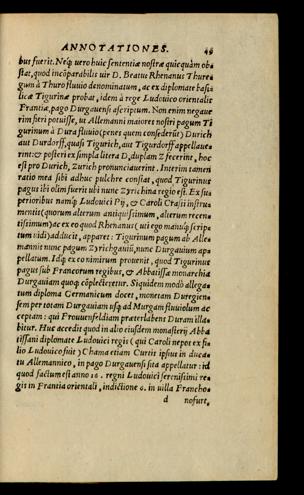 ANNOTATIONES. 49
bus fuerit. Neq; uero huic sententiæ nostræ quicquàm ob
stat, quod incõparabilis uir D. Beatus Rhenanus Thure
gum à Thuro fluuio denominatum, ac ex diplomate basi
licæ Tigurinæ probat, idem à rege Ludouico orientalis
Frantiæ, pago Durgauensi ascriptum. Non enim negaue
rim fieri potuisse, ut Allemanni maiores nostri pagum Ti
gurinum à Dura fluuio (penes quem consederũt) Durich
aut Durdorff, quasi Tigurich, aut Tigurdorff appellaue
rint: & posteri ex simpla litera D, duplam Z fecerint, hoc
est pro Durich, Zurich pronunciauerint. Interim tamen
ratio mea sibi adhuc pulchre constat, quod Tigurinus
pagus ibi olim fuerit ubi nunc Zyrichina regio est. Ex su
perioribus namq; Ludouici Pij, & Caroli Crassi instru
mentis (quorum alterum antiquissimum, alterum recen
tissimum) ac ex eo quod Rhenanus (ut ego manusq; scrip
tum uidi) adducit, apparet: Tigurinum pagum ab Alle
mannis nunc pagum Zyrichgauũ, nunc Durgauium ap
pellatum. Idq; ex eo nimirum prouenit, quod Tigurinus
pagus sub Francorum regibus, & Abbatissæ monarchia
Durgauiam quoq; cõplecteretur. Siquidem modò allega
tum diploma Germanicum docet, monetam Duregien
sem per totam Durgauiam usq; ad Murgam fluuiolum ac
ceptam: qui Frouuenfeldiam præterlabens Duram illa
bitur. Huc accedit quod in alio eiusdem monasterij Abba
tissani diplomate Ludouici regis (qui Caroli nepos ex fi
lio Ludouico fuit) Chama etiam Curtis ipsius in duca
tu Allemannico, in pago Durgauensi sita appellatur: id
quod factum est anno 26. regni Ludouici serenissimi re
gis in Frantia orientali, indictione 6. in uilla Francho
d nofurt,